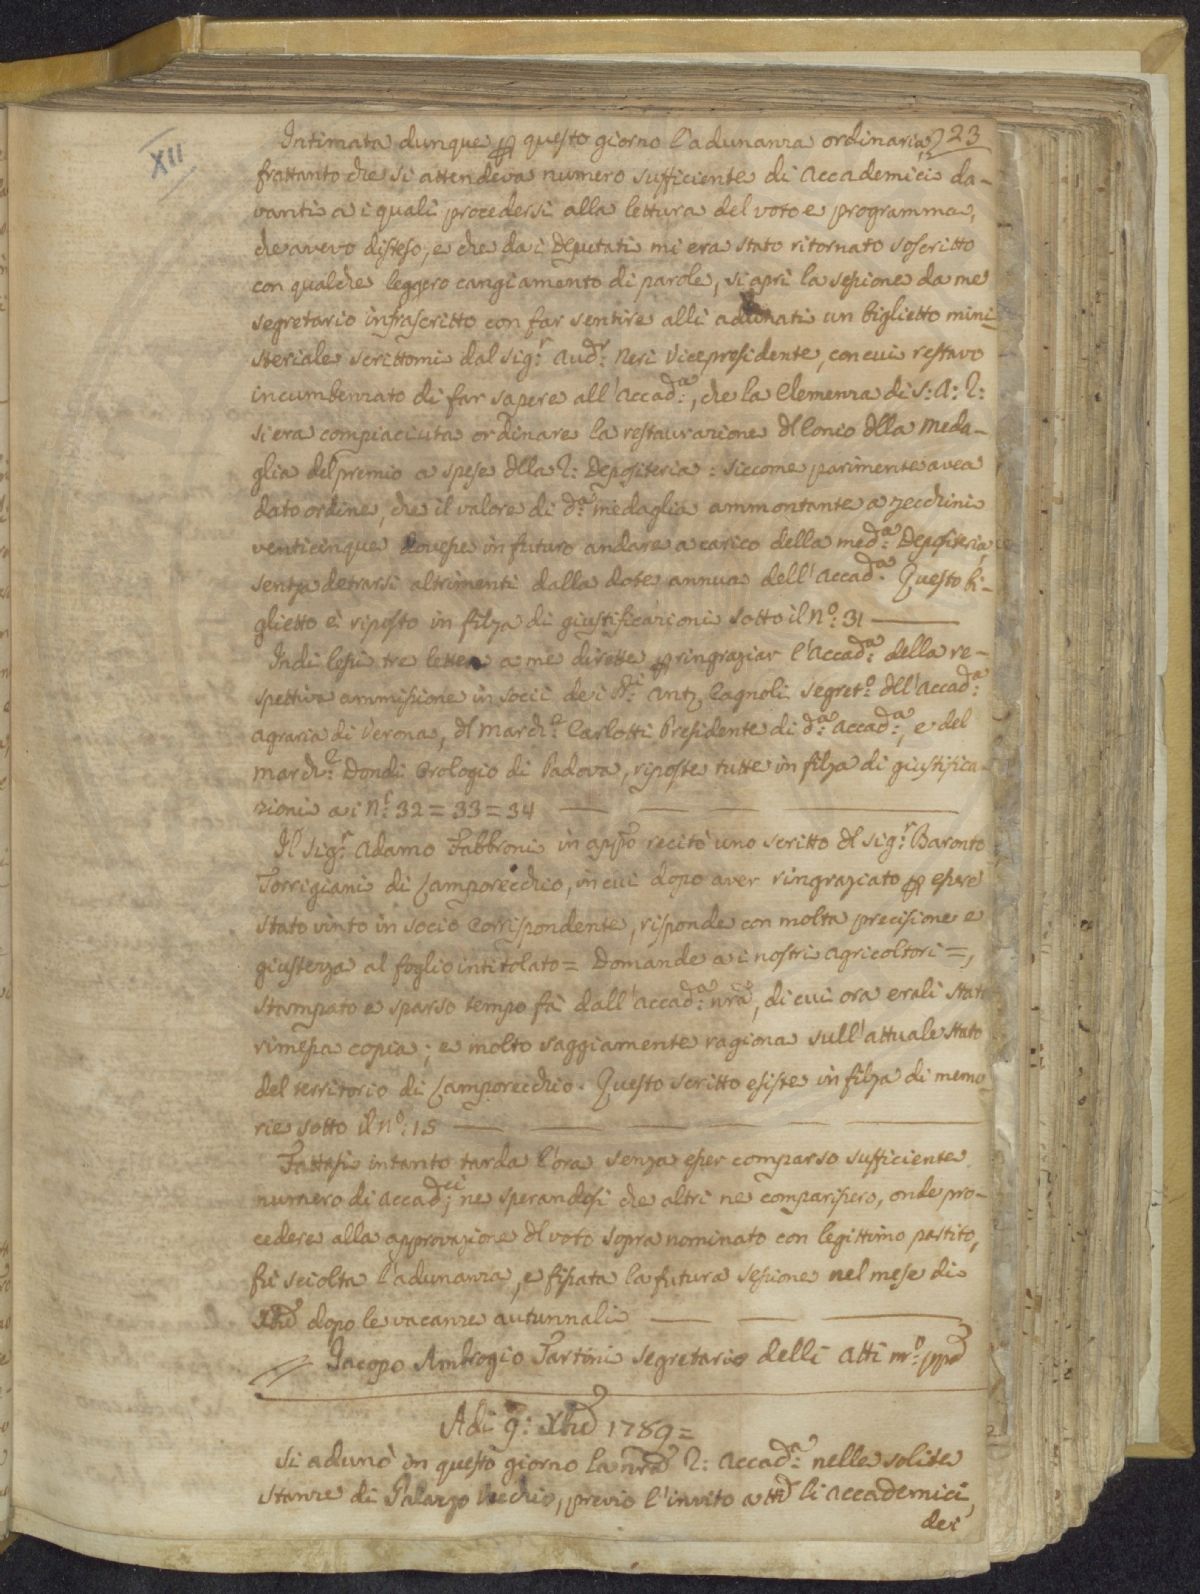 XII
23
Intimata dunque p questo giorno l'adunanza ordinaria,
frattanto che si attendeva numero sufficiente di Accademici da-
vanti a i quali procedersi alla lettura del voto e programma,
che avevo disteso, e che da i Deputati mi era stato ritornato soscritto
con qualche leggero cangiamento di parole, si aprì la sessione da me
segretario infrascritto con far sentire alli adunati un biglietto mini-
steriale scrittomi dal Sig.r Aud.r Neri Vicepresidente, con cui restavo
incumbenzato di far sapere all'Accad.a, che la Clemenza di S: A: R:
si era compiaciuta ordinare la restaurazione dl Conio dlla Meda-
glia del premio a spese dlla R: Depositeria: siccome parimente avea
dato ordine, che il valore di d.a medaglia ammontante a zecchini
venticinque dovesse in futuro andare a carico della med.a Depositeria,
senza detrarsi altrimenti dalla dote annua dell'Accad.a. Questo bi-
glietto è riposto in filza di giustificazioni sotto il N.o: 31 —
Indi lessi tre lettere a me dirette p ringraziar l'Accad.a della re-
spettiva ammissione in socii de i SS.ri Ant. Cagnoli Segret.o dll'Accad.a
agraria di Verona, dl March.e Carlotti Presidente di d.a Accad.a, e del
March.e Dondi Orologio di Padova, riposte tutte in filza di giustifica-
zioni a i N.i 32 = 33 = 34 — — —
Il Sig.r Adamo Fabbroni in app.o recitò uno scritto dl Sig.r Baronto
Torrigiani di Lamporecchio, in cui dopo aver ringraziato p essere
stato vinto in socio Corrispondente, risponde con molta precisione e
giustezza al foglio intitolato = Domande a i nostri agricoltori =,
stampato e sparso tempo fà dall'Accad.a nra, di cui ora erali stata
rimessa copia; e molto saggiamente ragiona sull'attuale stato
del territorio di Lamporecchio. Questo scritto esiste in filza di memo-
rie sotto il N.o: 15 — — — — — —
Fattasi intanto tarda l'ora senza esser comparso sufficiente
numero di Accad.ci, ne sperandosi che altri ne comparissero, onde pro-
cedere alla approvazione dl voto sopra nominato con legittimo partito,
fù sciolta l'adunanza, e fissata la futura sessione nel mese di
Xbre dopo le vacanze autunnali — — —
Iacopo Ambrogio Tartini Segretario delli Atti m.o pp.o
Adi 9: Xbre 1789 =
Si adunò in questo giorno la nra R: Accad.a nelle solite
stanze di Palazzo Vecchio, previo l'invito a tti li Accademici,
dei